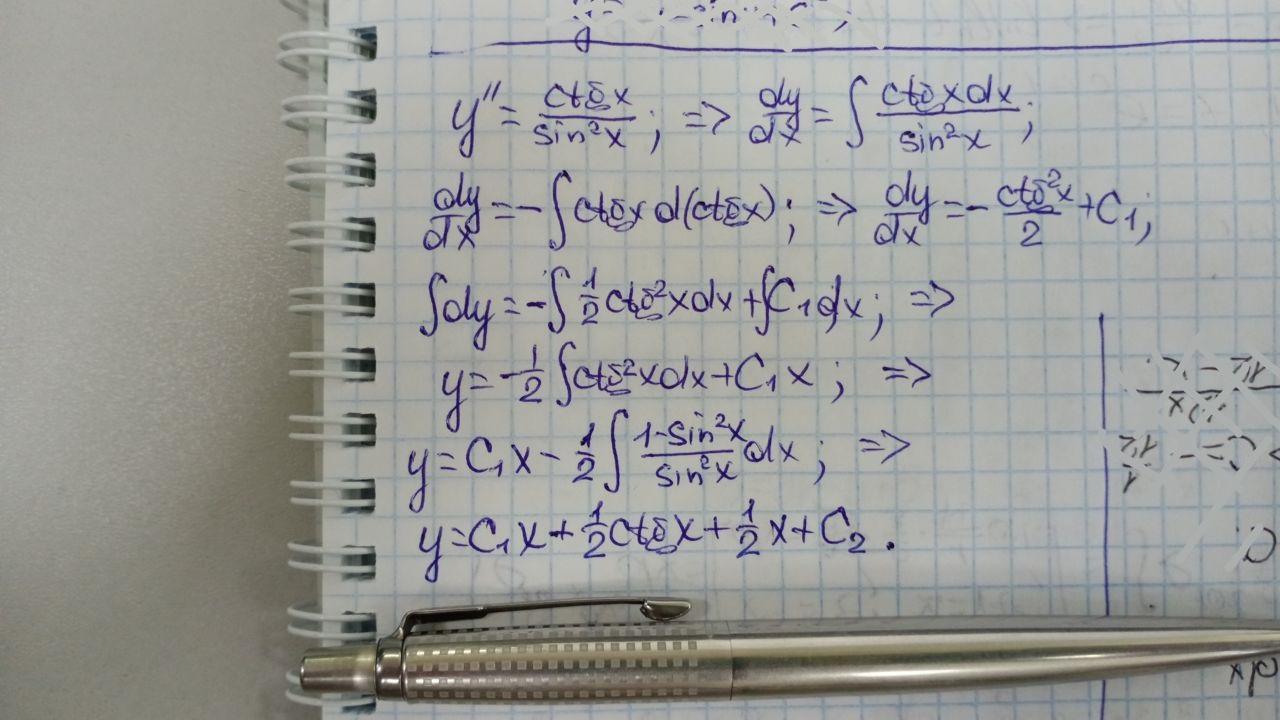 y'' = ctg x / sin²x ; => dy/dx = ∫ ctg x dx / sin²x ;
dy/dx = - ∫ ctg x d(ctg x) ; => dy/dx = - ctg²x / 2 + C₁ ;
∫ dy = - ∫ 1/2 ctg²x dx + ∫ C₁ dx ; =>
y = - 1/2 ∫ ctg²x dx + C₁ x ; =>
y = C₁ x - 1/2 ∫ (1-sin²x)/sin²x dx ; =>
y = C₁ x + 1/2 ctg x + 1/2 x + C₂ .